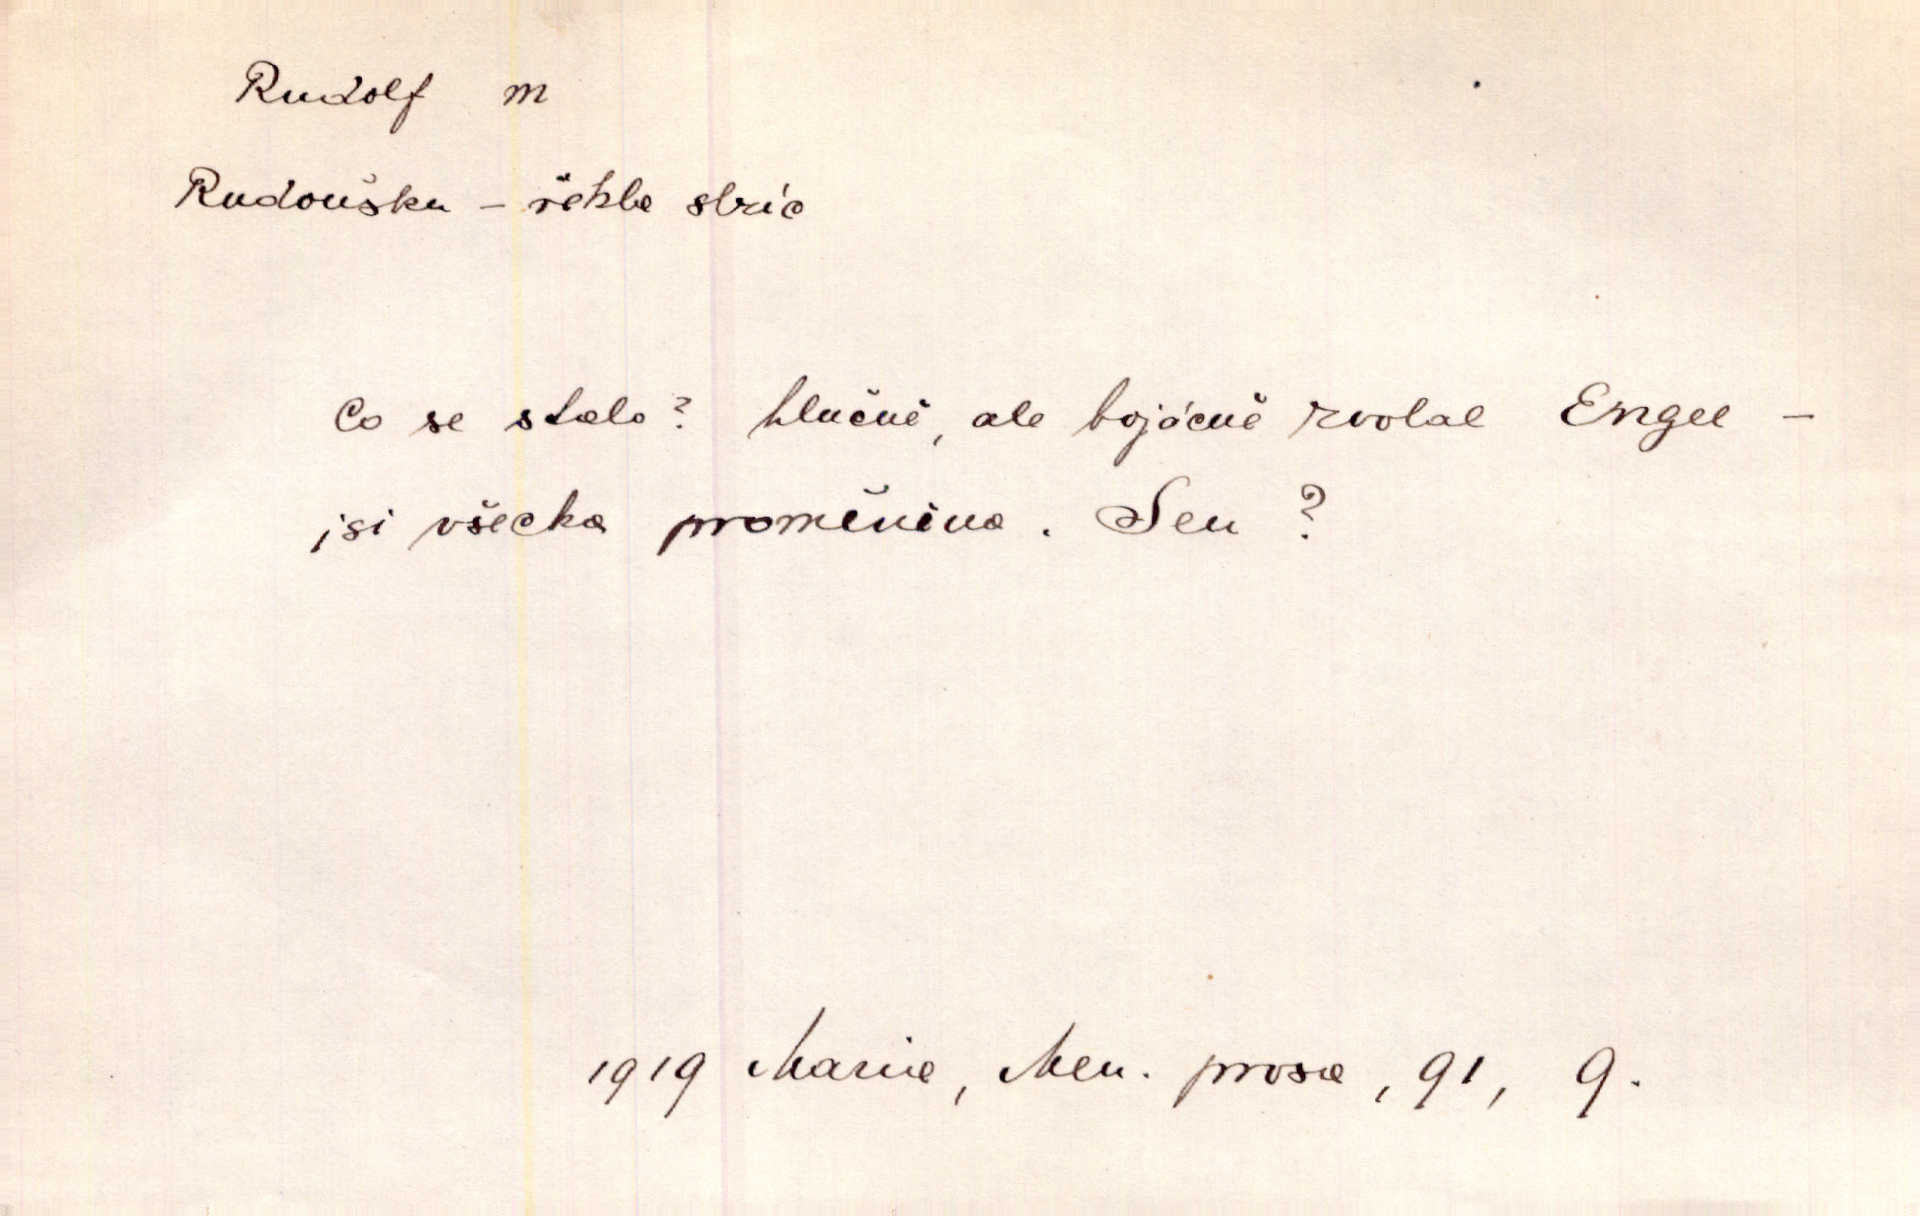 Rudolf m
Rudoušku – řekla strýc
Co se stalo? hlučně, ale bojácně zvolal Engel –
jsi všecka proměněna. Sen?
1919 Maria, Men. prosa, 91, 9.